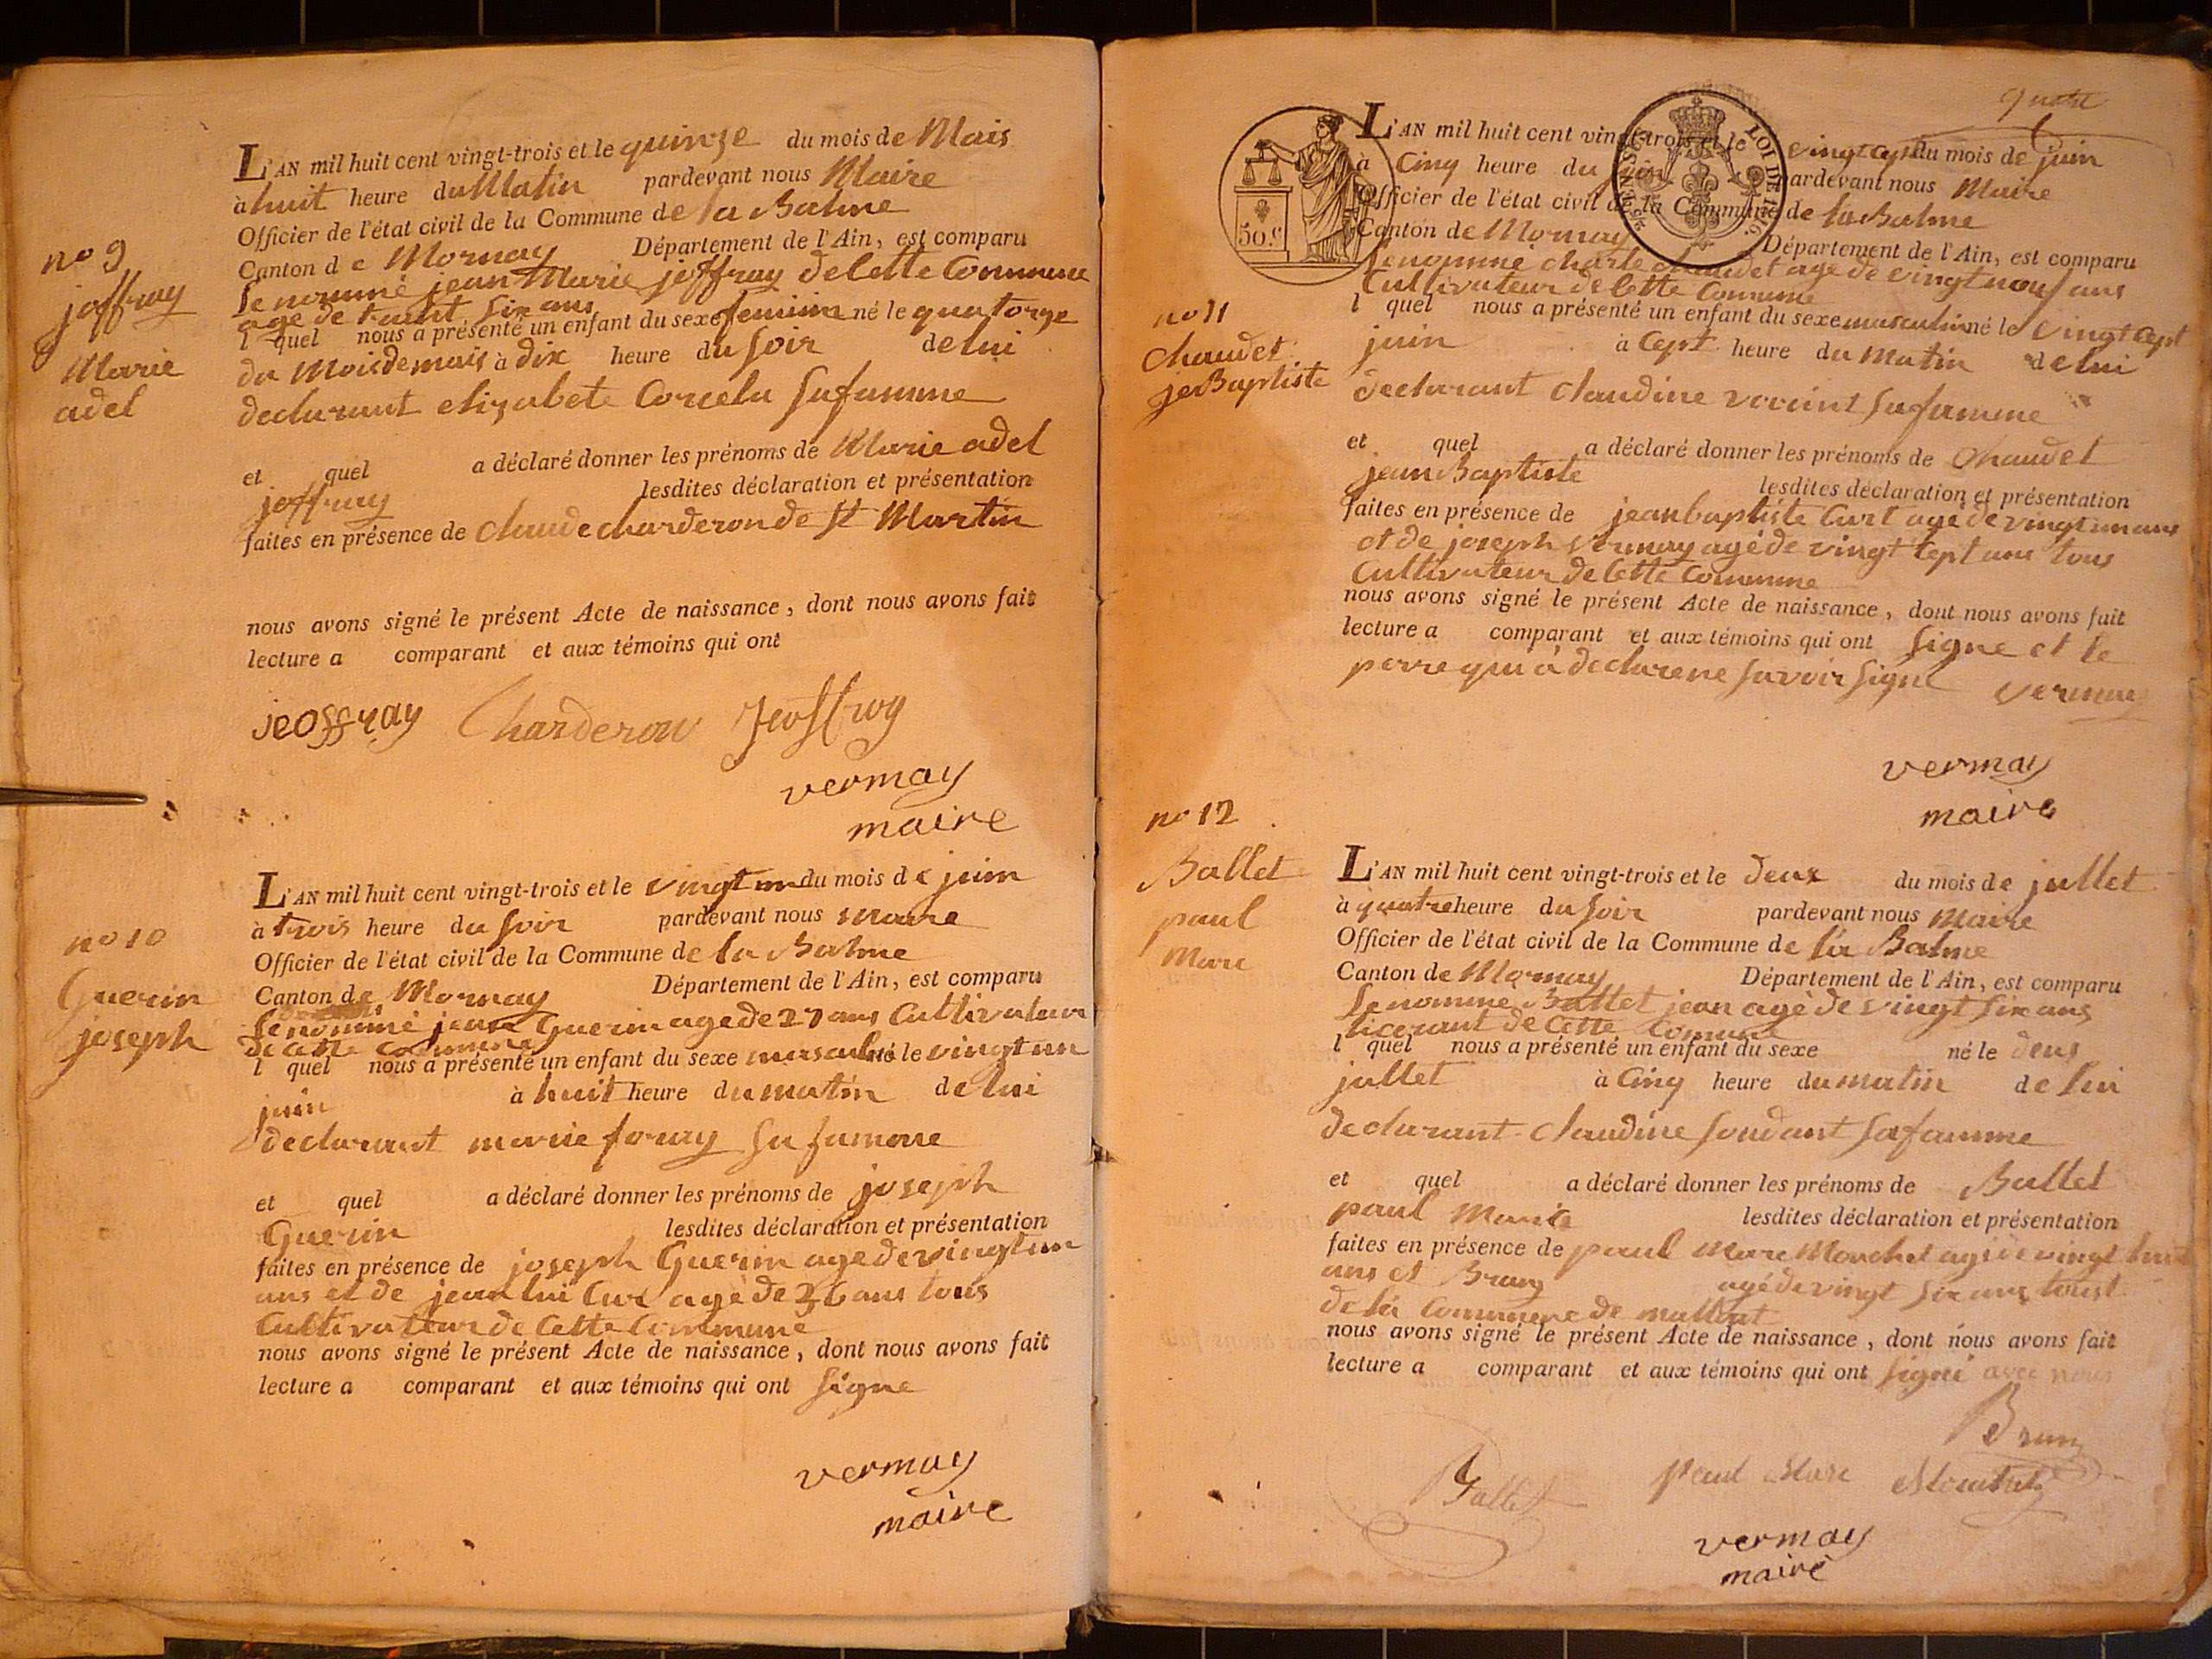 no 9
joffray
Marie
adel
L'AN mil huit cent vingt-trois et le quinze du mois de Mais
à huit heure du Matin pardevant nous Maire
Officier de l'état civil de la Commune de la Balme
Canton de Mornay Département de l'Ain, est comparu
le nommé jean Marie joffray de cette Commune
age de trant six ans
l quel nous a présenté un enfant du sexe feminin né le quatorze
du Mois de mais à dix heure du soir de lui
declarant elizabete Corcelu sa famme
et quel a déclaré donner les prénoms de Marie adel
joffray lesdites déclaration et présentation
faites en présence de claude charderon de st Martin
nous avons signé le présent Acte de naissance, dont nous avons fait
lecture a comparant et aux témoins qui ont
jeoffray Charderon Jeoffroy
vermay
maire
no 10
Guerin
joseph
L'AN mil huit cent vingt-trois et le vingt un du mois de juin
à trois heure du soir pardevant nous maire
Officier de l'état civil de la Commune de la Balme
Canton de Mornay Département de l'Ain, est comparu
le nommé jean Guerin age de 27 ans Cultivateur
de cette commune
l quel nous a présenté un enfant du sexe masculin né le vingt un
juin à huit heure du matin de lui
declarant marie fouray sa famme
et quel a déclaré donner les prénoms de joseph
Guerin lesdites déclaration et présentation
faites en présence de joseph Guerin age de vingt un
ans et de jean lui Cur agé de 26 ans tous
Cultivateur de Cette Commune
nous avons signé le présent Acte de naissance, dont nous avons fait
lecture a comparant et aux témoins qui ont signe
vermay
maire
quatre
50.C
LOI DE 1816.
no 11
chaudet
je Baptiste
L'AN mil huit cent vingt-trois et le vingt cept du mois de juin
à Cinq heure du soir pardevant nous Maire
Officier de l'état civil de la Commune de la Balme
Canton de Mornay Département de l'Ain, est comparu
le nomme charle chaudet age de vingt neuf ans
Cultivateur de Cette Comune
l quel nous a présenté un enfant du sexe masculin né le vingt cept
juin à Cept heure du Matin de lui
declarant claudine sa famme
et quel a déclaré donner les prénoms de Chaudet
jean Baptiste lesdites déclaration et présentation
faites en présence de jean baptiste Curt agé de vingt un ans
et de joseph vermay agé de vingt cept ans tous
Cultivateur de Cette Comune
nous avons signé le présent Acte de naissance, dont nous avons fait
lecture a comparant et aux témoins qui ont signe et le
perre qui a declare ne savoir signe vermay
vermay
maire
no 12
Ballet
paul
Marc
L'AN mil huit cent vingt-trois et le deux du mois de jullet
à quatre heure du soir pardevant nous Maire
Officier de l'état civil de la Commune de la Balme
Canton de Mornay Département de l'Ain, est comparu
le nomme Ballet jean agé de vingt six ans
de Cette Comune
l quel nous a présenté un enfant du sexe né le deux
jullet à Cinq heure du matin de lui
declarant claudine soudant sa famme
et quel a déclaré donner les prénoms de Ballet
paul Marc lesdites déclaration et présentation
faites en présence de paul Marc Monchet agé de vingt huit
ans et Brun agé de vingt six ans
de la Commune de
nous avons signé le présent Acte de naissance, dont nous avons fait
lecture a comparant et aux témoins qui ont signé avec nous
Brun
Ballet paul Marc
vermay
maire